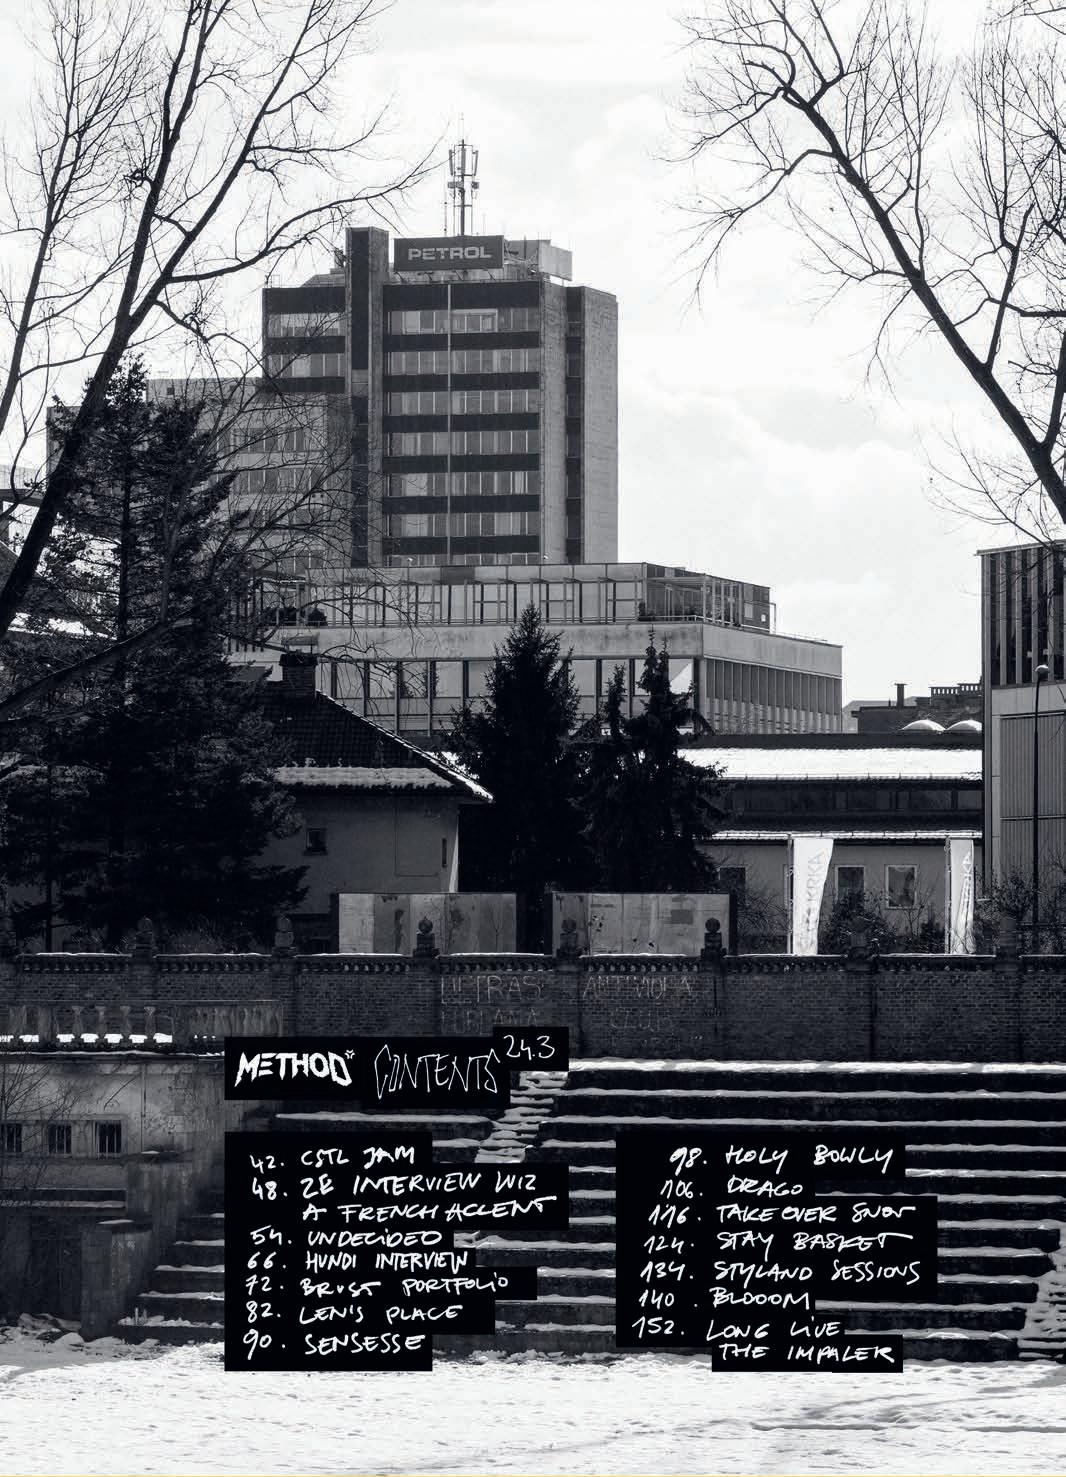 PETROL
KRKA
METHOD CONTENTS 24.3
42. CSTL JAM
48. ZE INTERVIEW WIZ
A FRENCH ACCENT
54. UNDECIDED
66. HUNDI INTERVIEW
72. BRUST PORTFOLIO
82. LEN'S PLACE
90. SENSESSE
98. HOLY BOWLY
106. DRAGO
116. TAKE OVER SNOW
124. STAY BASKET
134. STYLAND SESSIONS
140. BLOOOM
152. LONG LIVE
THE IMPALER